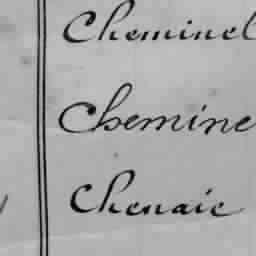 Cheminel
Chemine
Chenaie